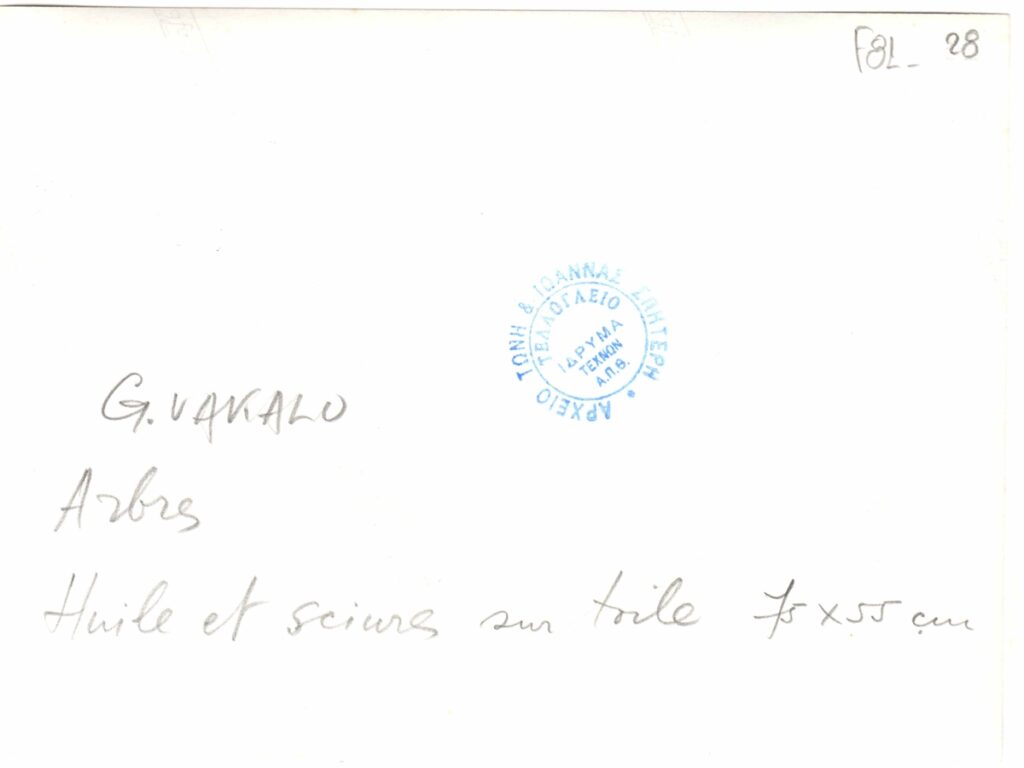 F8L_ 28
ΑΡΧΕΙΟ ΤΩΝΗ & ΙΩΑΝΝΑΣ ΣΠΗΤΕΡΗ
ΤΕΛΛΟΓΛΕΙΟ
ΙΔΡΥΜΑ
ΤΕΧΝΩΝ
Α.Π.Θ.
G. VAKALO
Arbres
Huile et sciures sur toile 75 x 55 cm